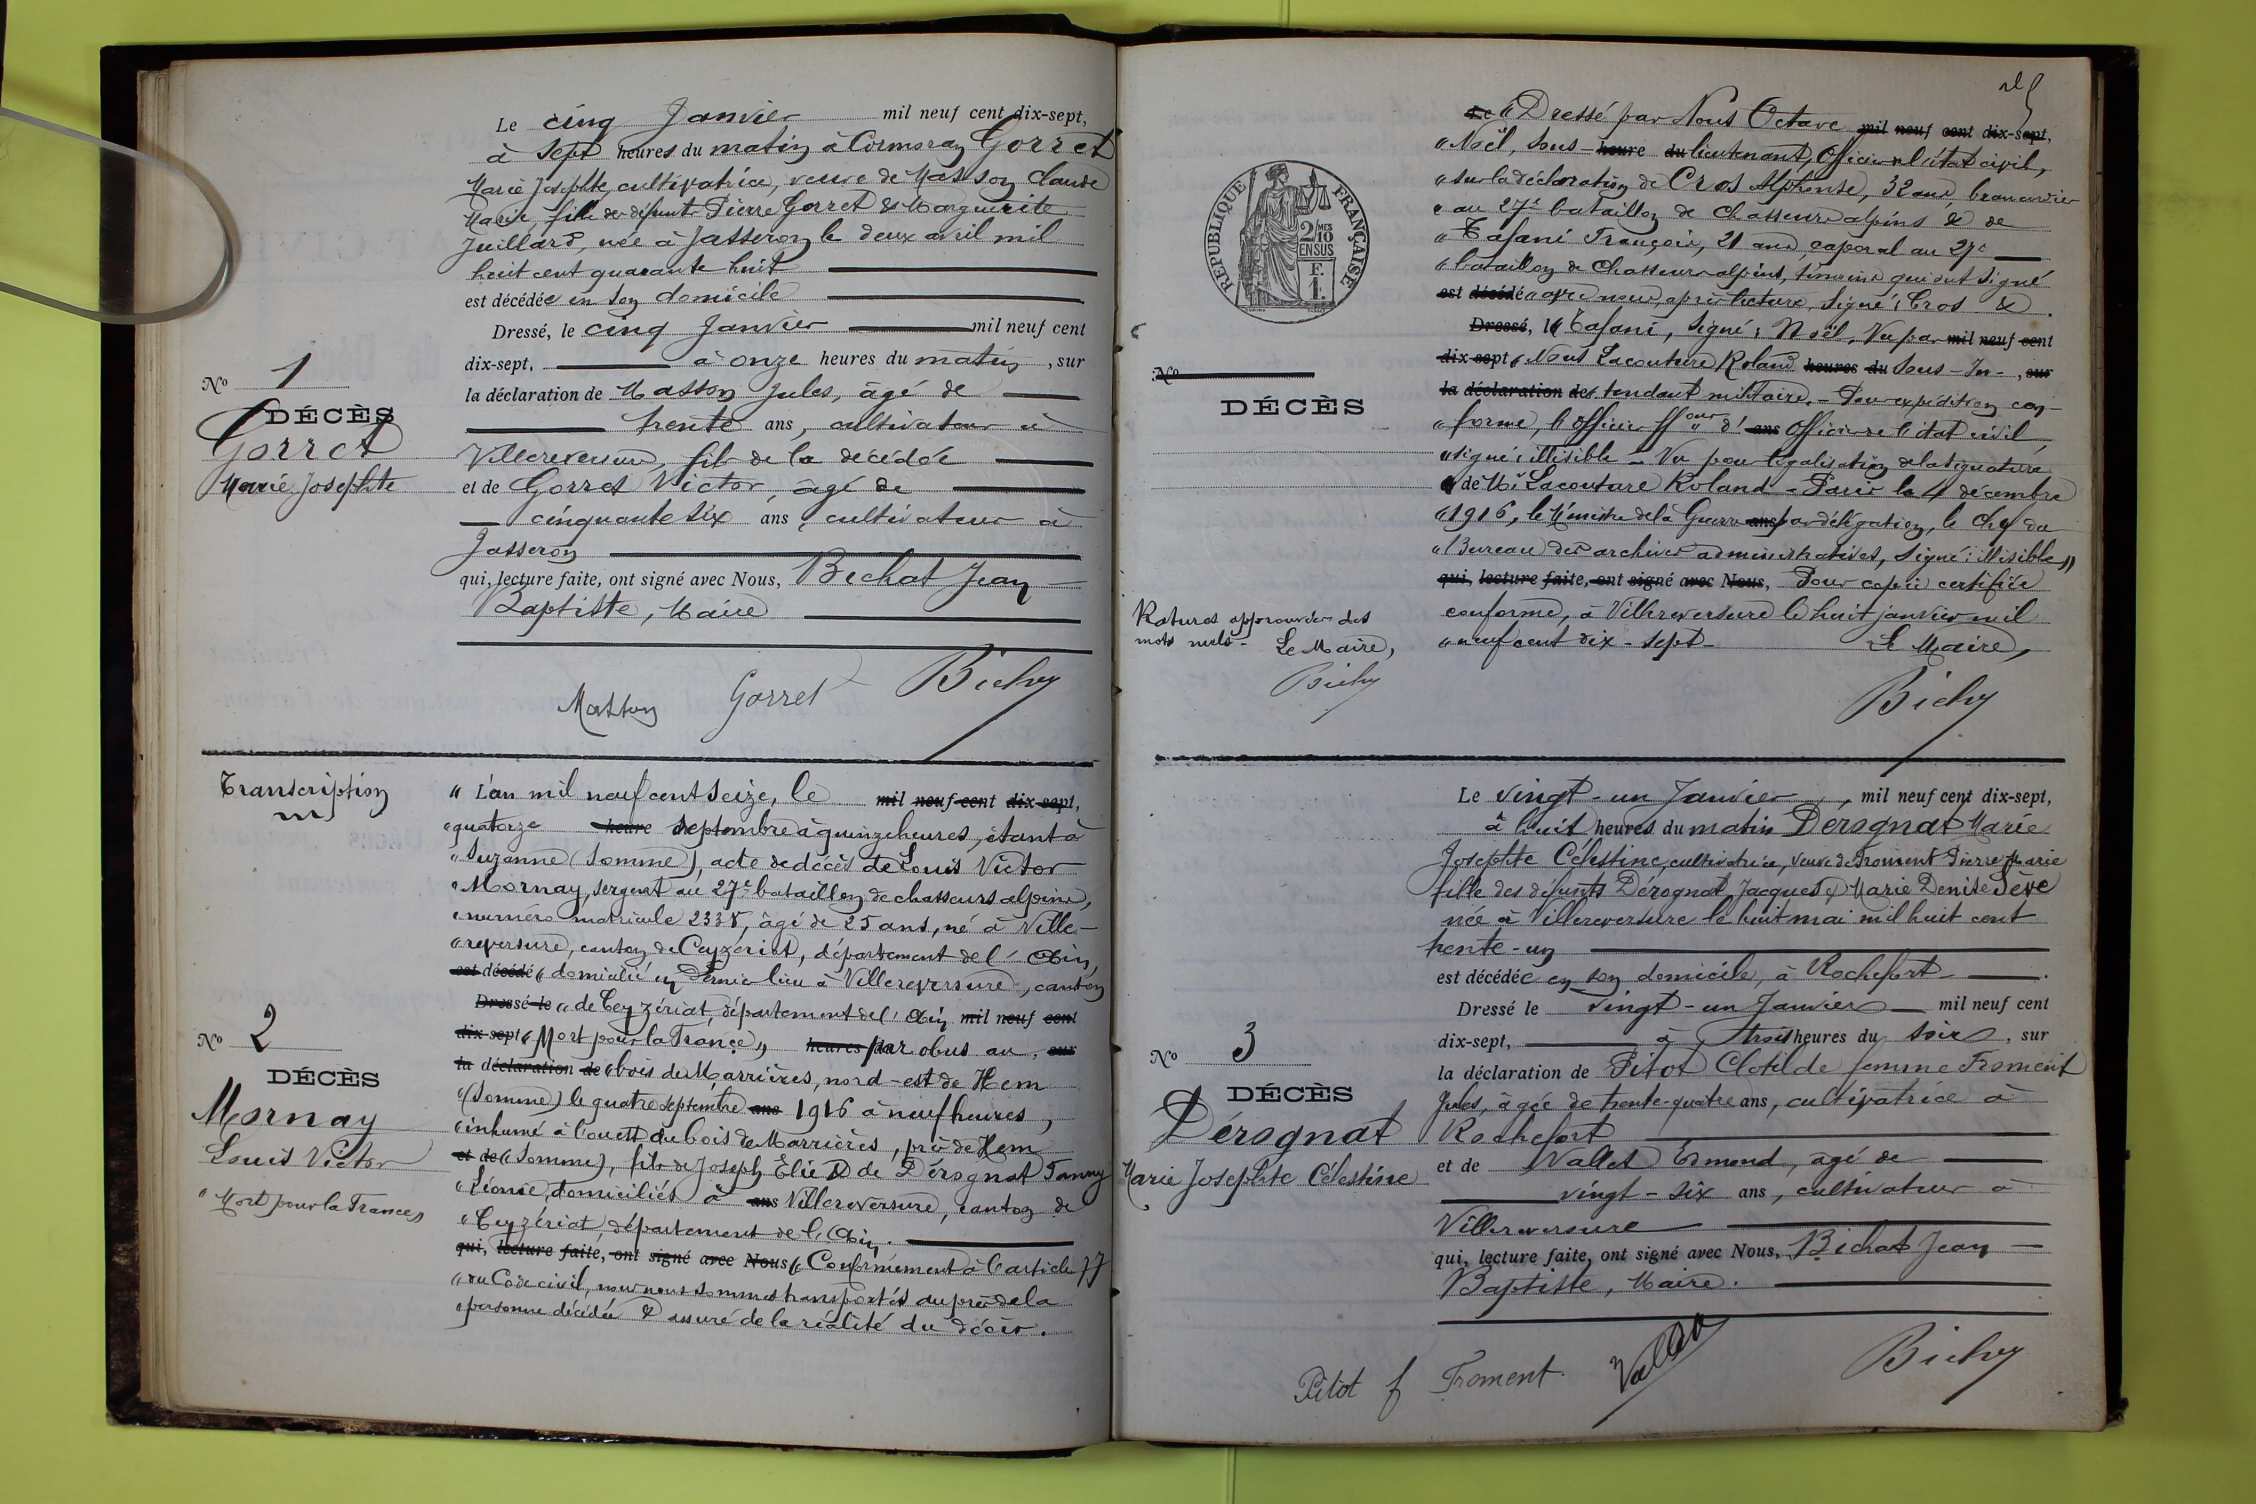 Le cinq Janvier mil neuf cent dix-sept,
à sept heures du matin à Cormoray Gorret
Marie Josephte, cultivatrice, veuve de Masson Claude
Marie, fille de défunts Pierre Gorret & Marguerite
Juillard, née à Jasseron le deux avril mil
huit cent quarante huit
est décédée en son domicile
Dressé, le cinq Janvier mil neuf cent
dix-sept, à onze heures du matin, sur
la déclaration de Masson Jules, âgé de
trente ans, cultivateur à
Villereversure, fils de la décédée
et de Gorret Victor, âgé de
cinquante six ans, cultivateur à
Jasseron
qui, lecture faite, ont signé avec Nous, Bichat Jean
Baptiste, Maire
Masson Gorret Bichat
No 1
DÉCÈS
Gorret
Marie Josephte
Transcription
No 2
DÉCÈS
Mornay
Louis Victor
"Mort pour la France"
"L'an mil neuf cent seize, le mil neuf cent dix-sept,
"quatorze heure septembre à quinze heures, étant à
"Suzanne (Somme), acte de décès de Louis Victor
"Mornay, sergent au 27e bataillon de chasseurs alpins,
"numéro matricule 2338, âgé de 25 ans, né à Ville-
"reversure, canton de Ceyzériat, département de l'Ain,
est décédé "domicilié en dernier lieu à Villereversure, canton
Dressé le "de Ceyzériat, département de l'Ain mil neuf cent
dix-sept "Mort pour la France" heures du par obus au, sur
la déclaration de "bois des Marrières, nord-est de Hem
"(Somme) le quatre septembre ans 1916 à neuf heures,
"inhumé à l'ouest du bois de Marrières, près de Hem
et de "(Somme), fils de Joseph Elie & de Dérognat Fanny
"Léonie, domiciliés à ans Villereversure, canton de
"Ceyzériat, département de l'Ain.
qui, lecture faite, ont signé avec Nous "Conformément à l'article 77
"du Code civil, nous nous sommes transportés auprès de la
"personne décédée & assuré de la réalité du décès.
Le "Dressé par Nous Octave mil neuf cent dix-sept,
"Noël, sous- heure du lieutenant, Officier de l'état civil,
"sur la déclaration de Cros Alphonse, 32 ans, brancardier
"au 27e bataillon de chasseurs alpins & de
"Tafani François, 21 ans, caporal au 27e
"bataillon de chasseurs alpins, témoins qui ont signé
est décédé "avec nous, après lecture, signé : Cros &
Dressé, le "Tafani, signé : Noël, Vu par mil neuf cent
dix-sept "Nous Lacouture Roland heures du Sous-In-, sur
la déclaration de "tendant militaire. - Pour expédition con-
"forme, l'officier d' ans Officier de l'état civil
"signé : illisible - Vu pour légalisation de la signature
"de Mr Lacouture Roland - Paris le 4 décembre
"1916, le Ministre de la Guerre ans par délégation, le chef du
"Bureau des archives administratives, signé : illisible"
qui, lecture faite, ont signé avec Nous, Pour copie certifiée
conforme, à Villereversure le huit janvier mil
"neuf cent dix-sept - Le Maire,
Bichat
RÉPUBLIQUE FRANÇAISE
2/10 MES
EN SUS
F.
1.
No
DÉCÈS
Ratures approuvées des
mots nuls - Le Maire,
Bichat
Le vingt-un Janvier, mil neuf cent dix-sept,
à huit heures du matin Dérognat Marie
Josephte Célestine, cultivatrice, veuve de Froment Pierre Marie
fille des défunts Dérognat Jacques & Marie Denise Sève
née à Villereversure le huit mai mil huit cent
trente-un
est décédée en son domicile, à Rochefort
Dressé le vingt-un Janvier mil neuf cent
dix-sept, à trois heures du soir, sur
la déclaration de Pitot Clotilde femme Froment
Jules, âgée de trente-quatre ans, cultivatrice à
Rochefort
et de Vallet Edmond, âgé de
vingt-six ans, cultivateur à
Villereversure
qui, lecture faite, ont signé avec Nous, Bichat Jean
Baptiste, Maire.
Pitot f Froment Vallet Bichat
No 3
DÉCÈS
Dérognat
Marie Josephte Célestine